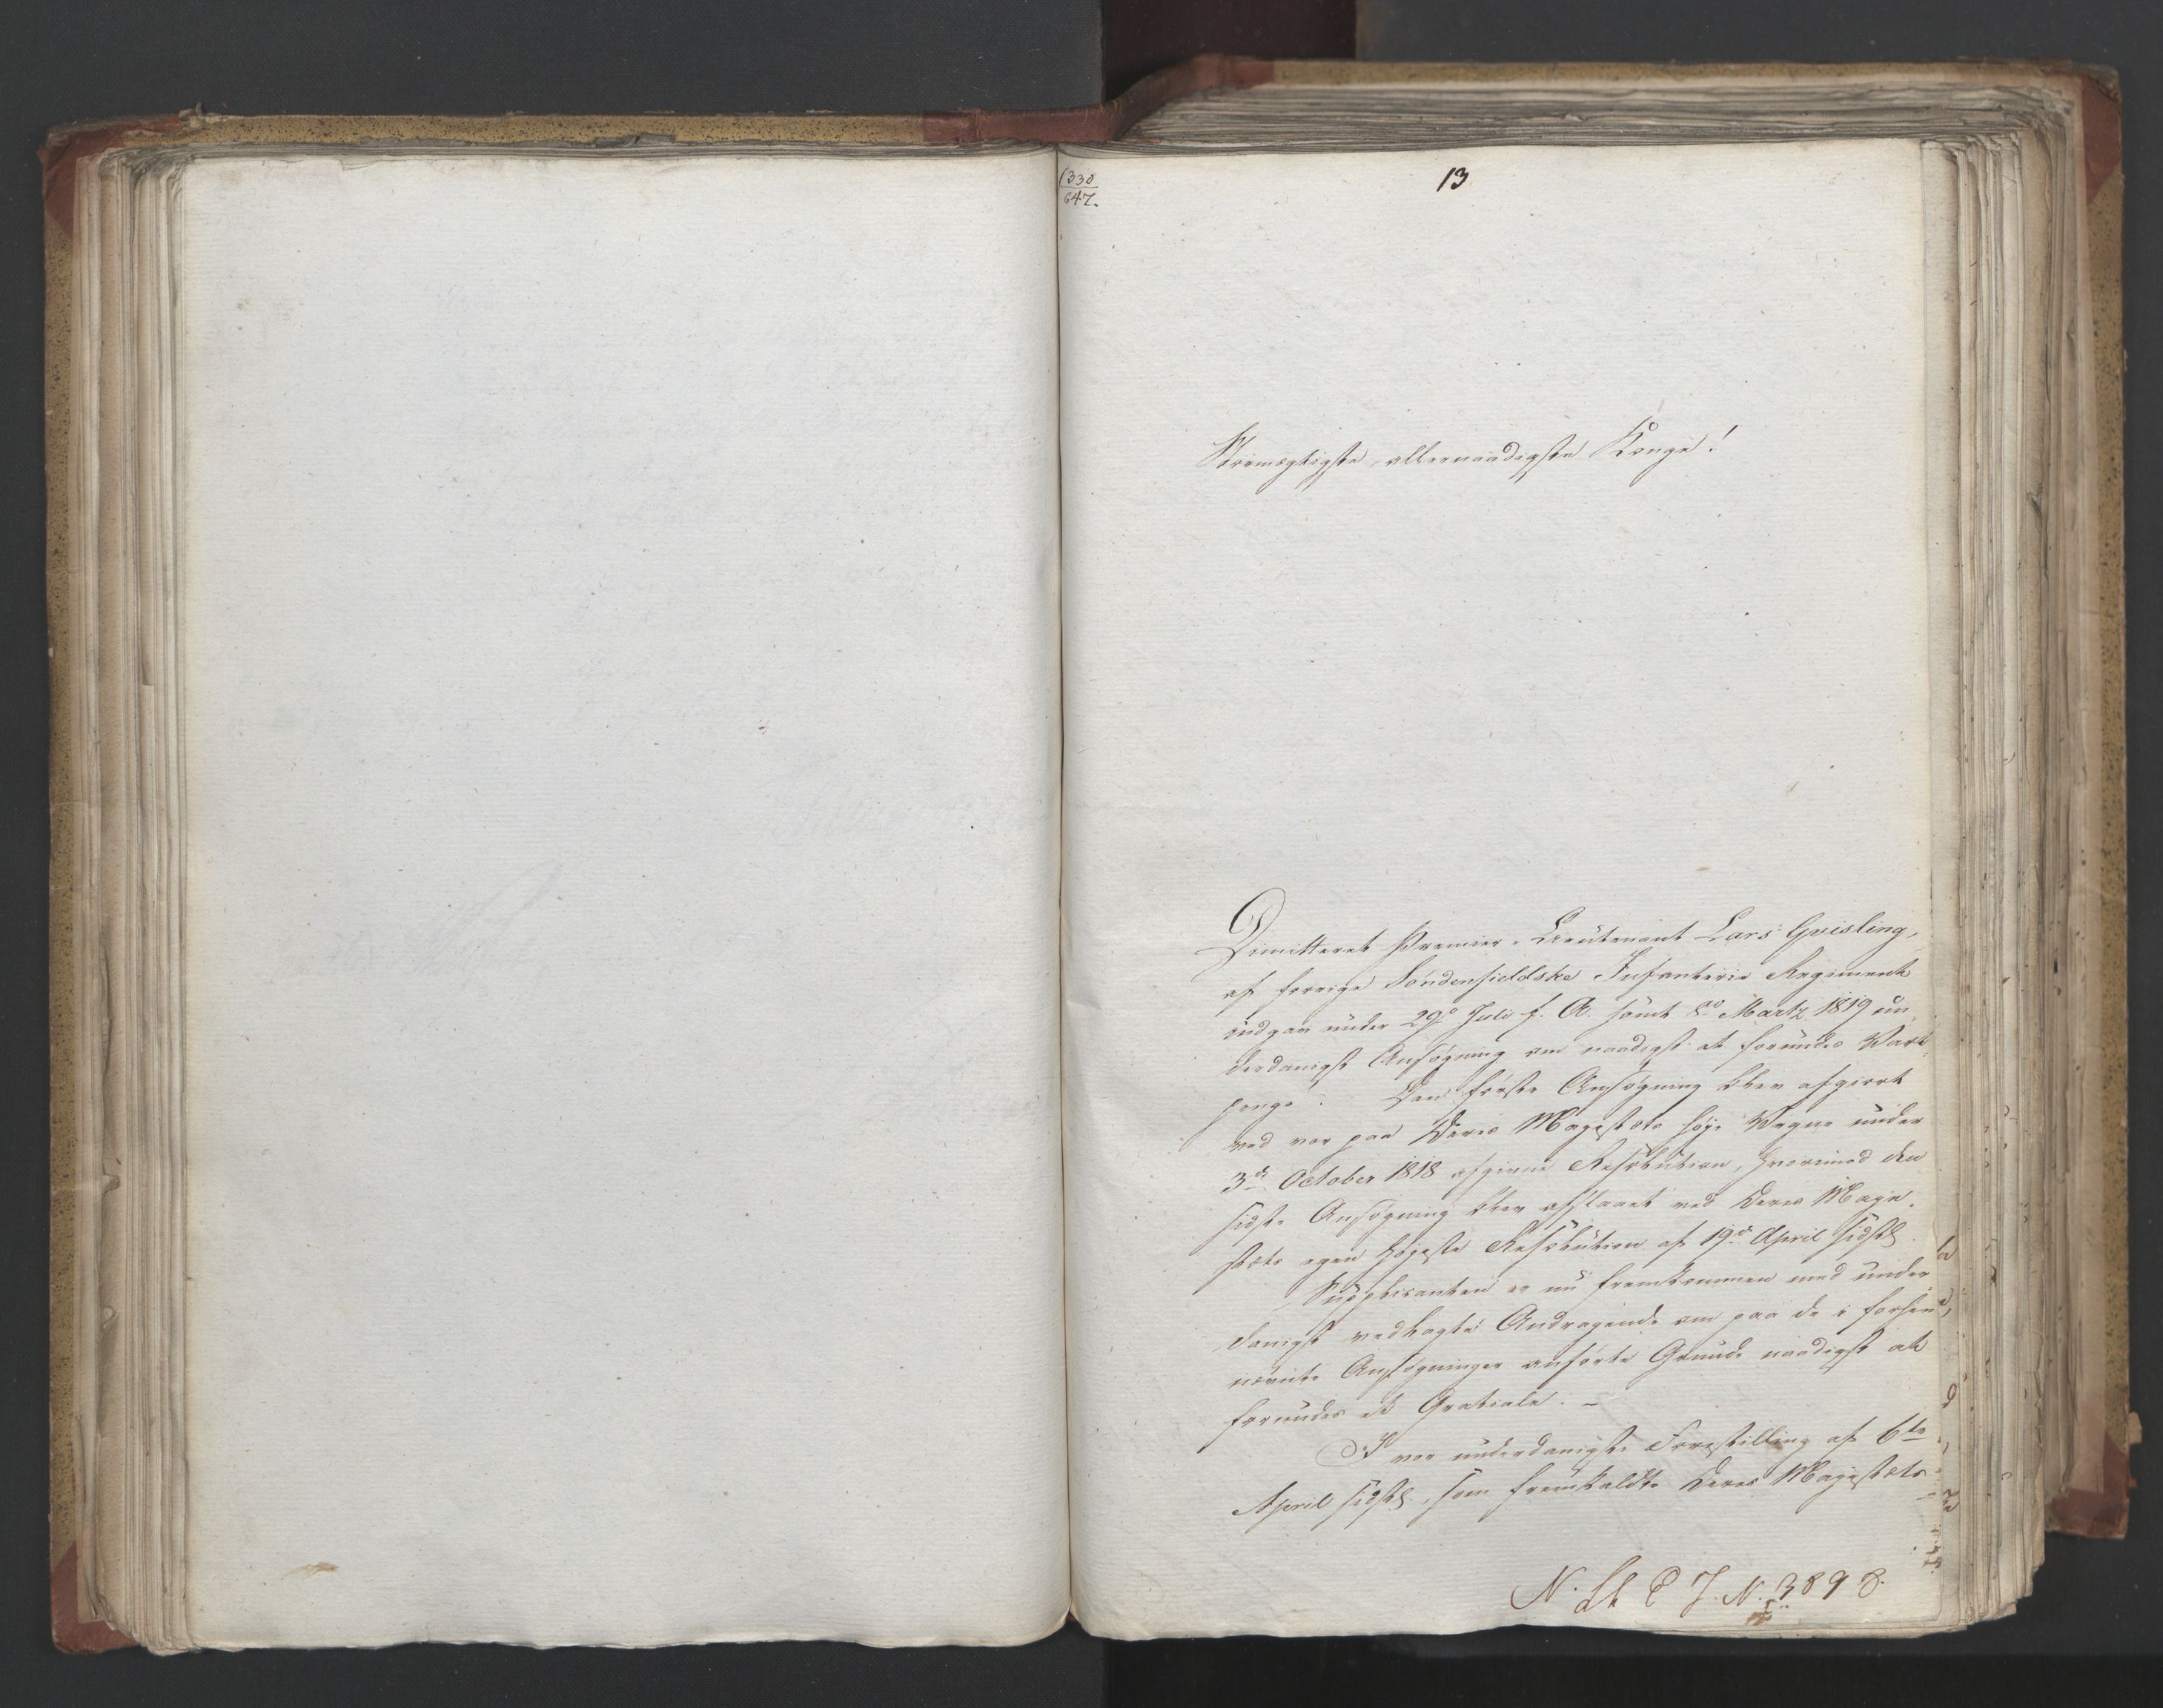 1330
647.
13
Stormægtigste, allernaadigste Konge!
Dimitteret Premier-Lieutenant Lars Qvisling,
af forrige Søndenfieldske Infanterie Regiment
indgav under 29de Juli f. A. samt Martz 1819 un-
derdanigst Ansøgning om naadigst at forundes Vart-
penge. Den første Ansøgning blev afgiort
ved vor paa Deres Majestæts høje Vegne under
3die October 1818 afgivne Resolution, hvorimod den
sidste Ansøgning blev afslaaet ved Deres Maje-
stæts egen højeste Resolution af 19de April sidstl.
Supplicanten er nu fremkommen med under-
danigst vedlagte Andragende om paa de i forhen
nævnte Ansøgninger anførte Grunde naadigst at
forundes et Gratiale. –
I vor underdanigste Forestilling af 6te
April sidstl., som fremkaldte Deres Majestæts
N. St. C J. N. 3898.